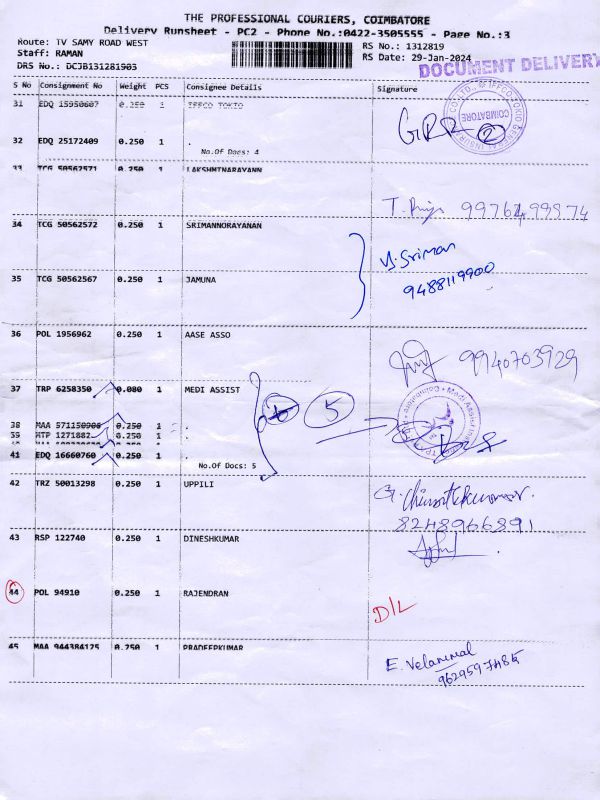 THE PROFESSIONAL COURIERS, COIMBATORE
Delivery Runsheet - PC2 - Phone No.:0422-3505555 - Page No.:3
Route: TV SAMY ROAD WEST
RS No.: 1312819
Staff: RAMAN
RS Date: 29-Jan-2024
DRS No.: DCJB131281903
DOCUMENT DELIVERY
S No Consignment No Weight PCS Consignee Details Signature
31 EDQ 15950607 0.250 1 IFFCO TOKIO
COIMBATORE
32 EDQ 25172409 0.250 1 .
No.Of Docs: 4
33 TCG 50562571 0.250 1 LAKSHMINARAYANN
34 TCG 50562572 0.250 1 SRIMANNORAYANAN
V. Sriman
9488119900
35 TCG 50562567 0.250 1 JAMUNA
36 POL 1956962 0.250 1 AASE ASSO
9940703929
37 TRP 6258350 0.080 1 MEDI ASSIST
5
38 MAA 571150908 0.250 1 .
39 HTP 1271882 0.250 1 .
41 EDQ 16660760 0.250 1
No.Of Docs: 5
42 TRZ 50013298 0.250 1 UPPILI
8248966891
43 RSP 122740 0.250 1 DINESHKUMAR
44 POL 94910 0.250 1 RAJENDRAN
D/L
45 MAA 944384125 0.250 1 PRADEEPKUMAR
E. Velammal